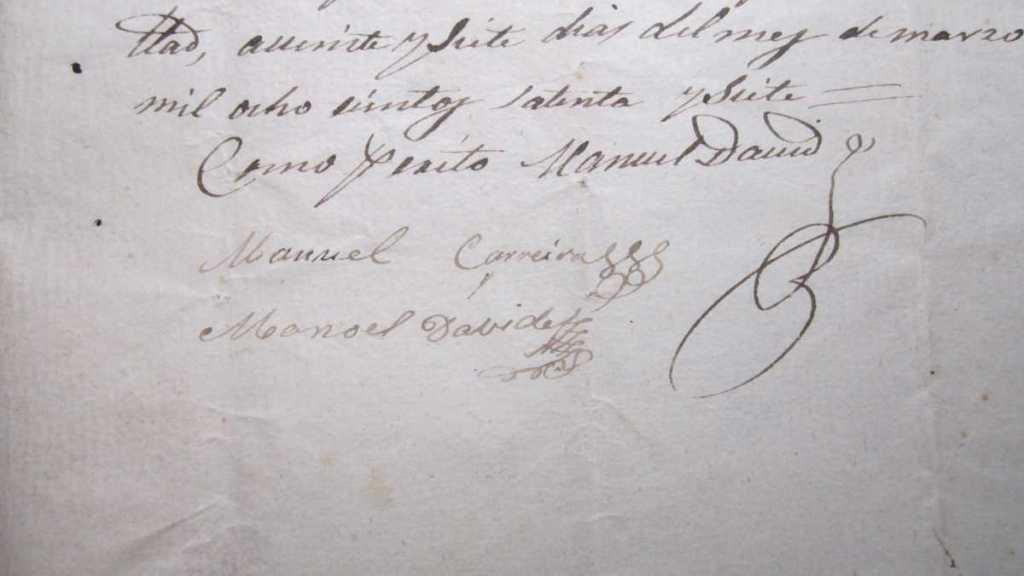 ttad, aveinte y Siete dias del mes de marzo
mil ocho cientos setenta y Siete =
Como Perito Manuel David
Manuel Carreira
Manoel Davide